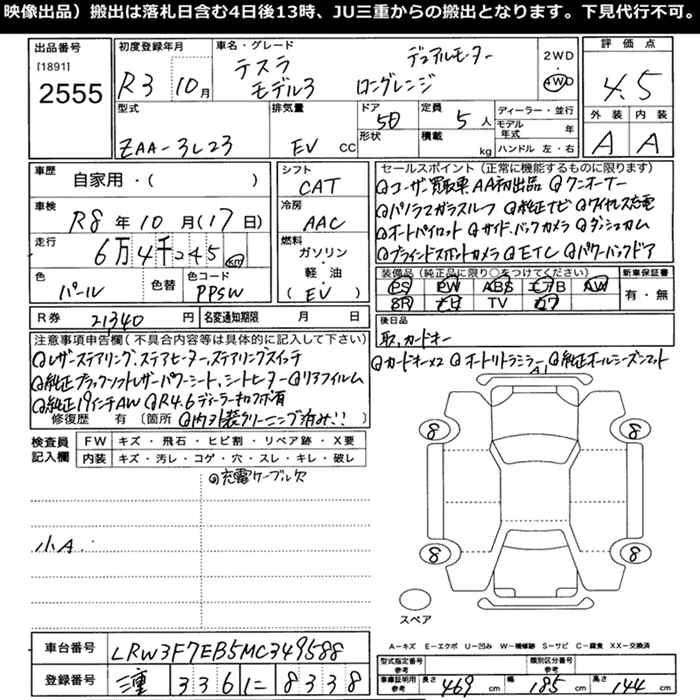 映像出品）搬出は落札日含む4日後13時、JU三重からの搬出となります。下見代行不可。
出品番号 [1891] 2555
初度登録年月 R3 10月
車名・グレード テスラ モデル3 ロングレンジ デュアルモーター
2WD 4WD
評価点 4.5
外装 A 内装 A
型式 ZAA-3L23
排気量 EV CC
ドア 5D 形状
定員 5人 積載 kg
ディーラー・並行
モデル年式 年
ハンドル 左・右
車歴 自家用・( )
車検 R8年10月(17日)
走行 6万4千245 km
色 パール 色替
色コード PPSW
シフト CAT
冷房 AAC
燃料 ガソリン・軽油 (EV)
セールスポイント（正常に機能するものに限ります）
◎ユーザー買取車AA初出品 ◎ワンオーナー
◎パノラマガラスルーフ ◎純正ナビ ◎ワイヤレス充電
◎オートパイロット ◎サイド、バックカメラ ◎ダッシュカム
◎ブラインドスポットカメラ ◎ETC ◎パワーバックドア
装備品（純正品に限り○をつけてください） 新車保証書
PS PW ABS エアB AW 有・無
SR ナビ TV カワ
R券 21340円 名変通知期限 月 日
後日品
取、カードキー
◎カードキー×2 ◎オートリトラミラー ◎純正オールシーズンマット
注意事項申告欄(不具合内容等は具体的に記入して下さい)
◎レザーステアリング、ステアヒーター、ステアリングスイッチ
◎純正ブラックソフトレザーパワーシート、シートヒーター ◎リアフィルム
◎純正19インチAW ◎R4.6ディーラーキロカク有
修復歴 有 (箇所 ◎内外装クリーニング済み!!)
検査員記入欄
FW キズ・飛石・ヒビ割・リペア跡・X要
内装 キズ・汚レ・コゲ・穴・スレ・キレ・破レ
◎充電ケーブル欠
小A
A1
8 8
8 8
スペア
A－キズ E－エクボ U－凹み W－補修跡 S－サビ C－腐食 XX－交換済
車台番号 LRW3F7EB5MC349588
登録番号 三重 336 に 8338
型式指定番号 参考 類別区分番号 参考
車庫証明用 参考 長さ 469cm 幅 185cm 高さ 144cm